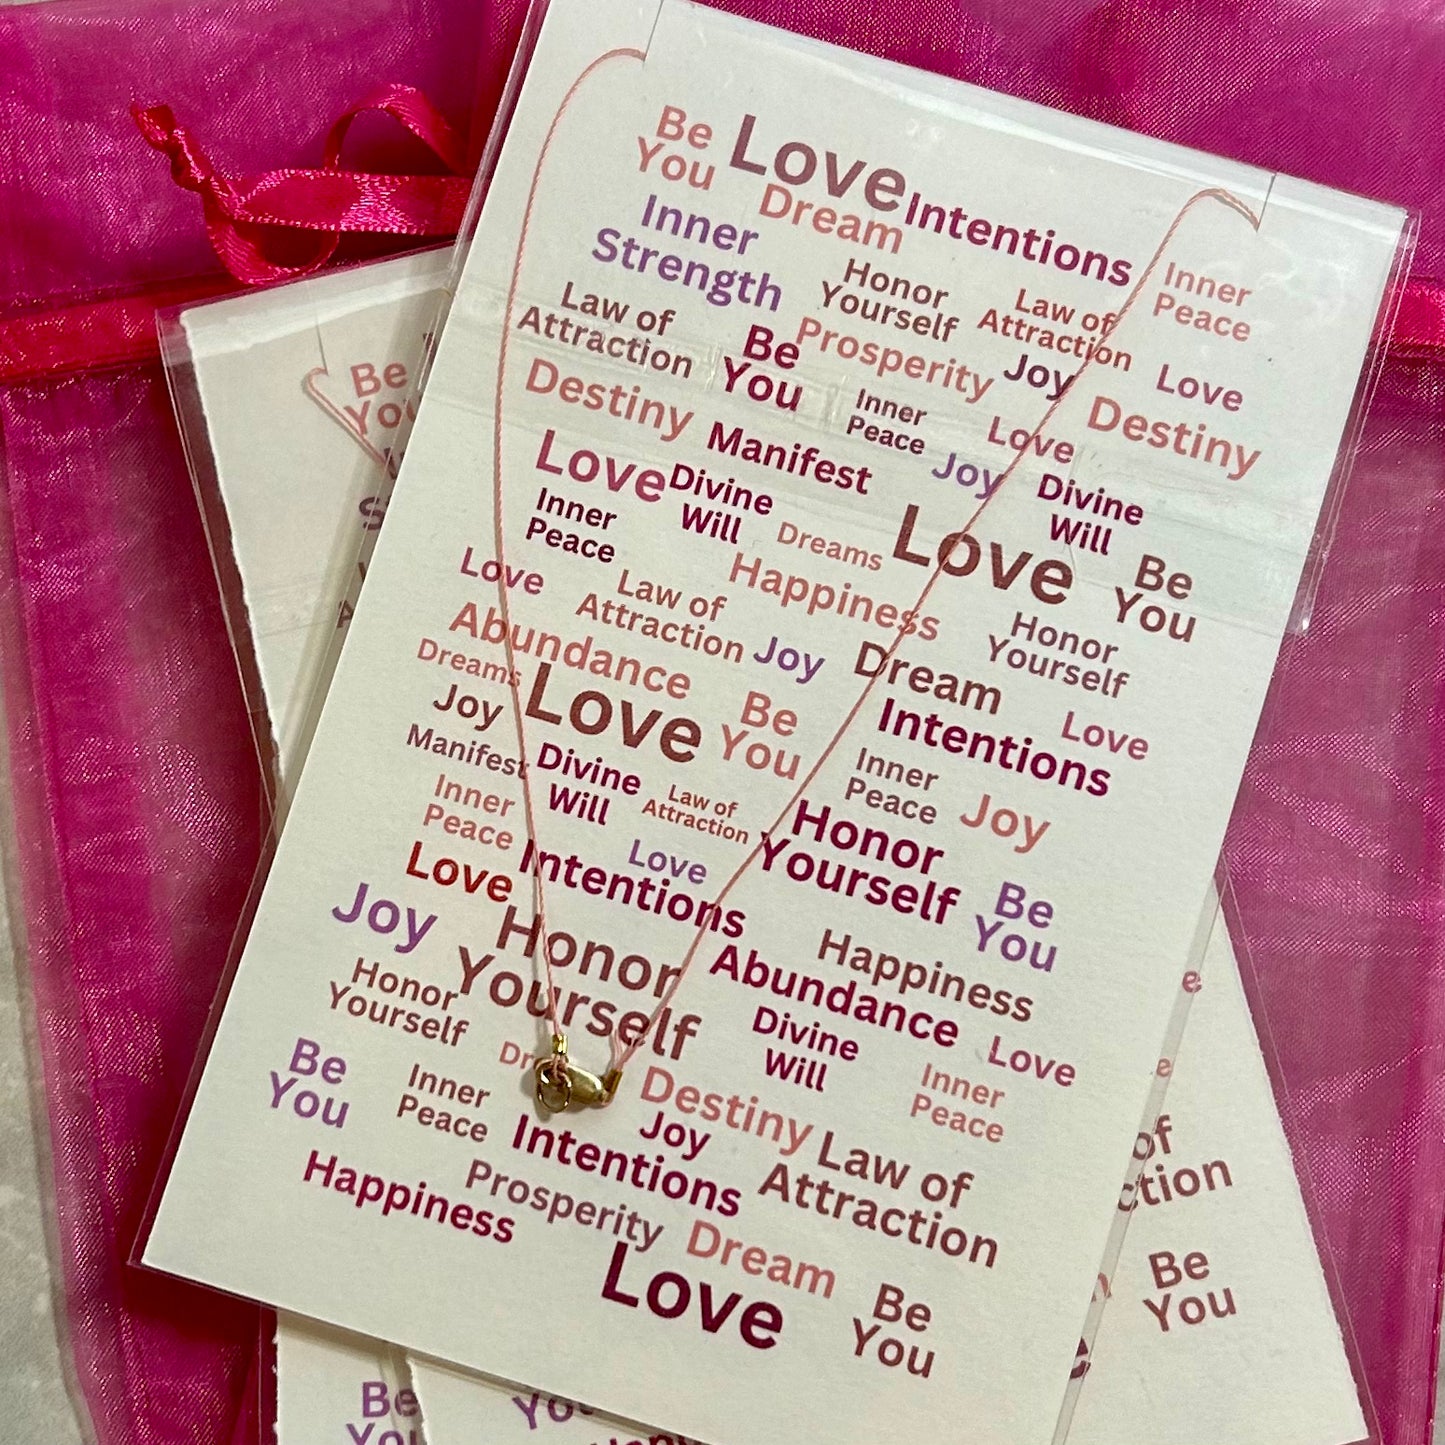 Be
You
Love
Dream
Intentions
Inner
Strength
Honor
Yourself
Law of
Attraction
Inner
Peace
Law of
Attraction
Be
You
Prosperity
Joy
Love
Destiny
Manifest
Inner
Peace
Love
Destiny
Love
Divine
Will
Joy
Divine
Will
Inner
Peace
Dreams
Love
Be
You
Love
Law of
Attraction
Happiness
Honor
Yourself
Abundance
Joy
Dream
Dreams
Love
Be
You
Intentions
Love
Joy
Manifest
Divine
Will
Law of
Attraction
Inner
Peace
Joy
Inner
Peace
Love
Honor
Yourself
Be
You
Love
Intentions
Joy
Honor
Yourself
Happiness
Abundance
Honor
Yourself
Divine
Will
Love
Be
You
Inner
Peace
Destiny
Inner
Peace
Intentions
Joy
Law of
Attraction
Happiness
Prosperity
Dream
Love
Be
You
Be
of
Be
You
Be